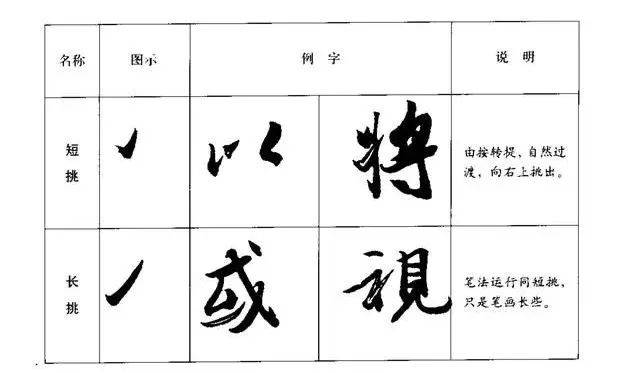 名称 图示 例字 说明
短挑 以 将 由按转提，自然过
渡，向右上挑出。
长挑 或 視 笔法运行同短挑，
只是笔画长些。